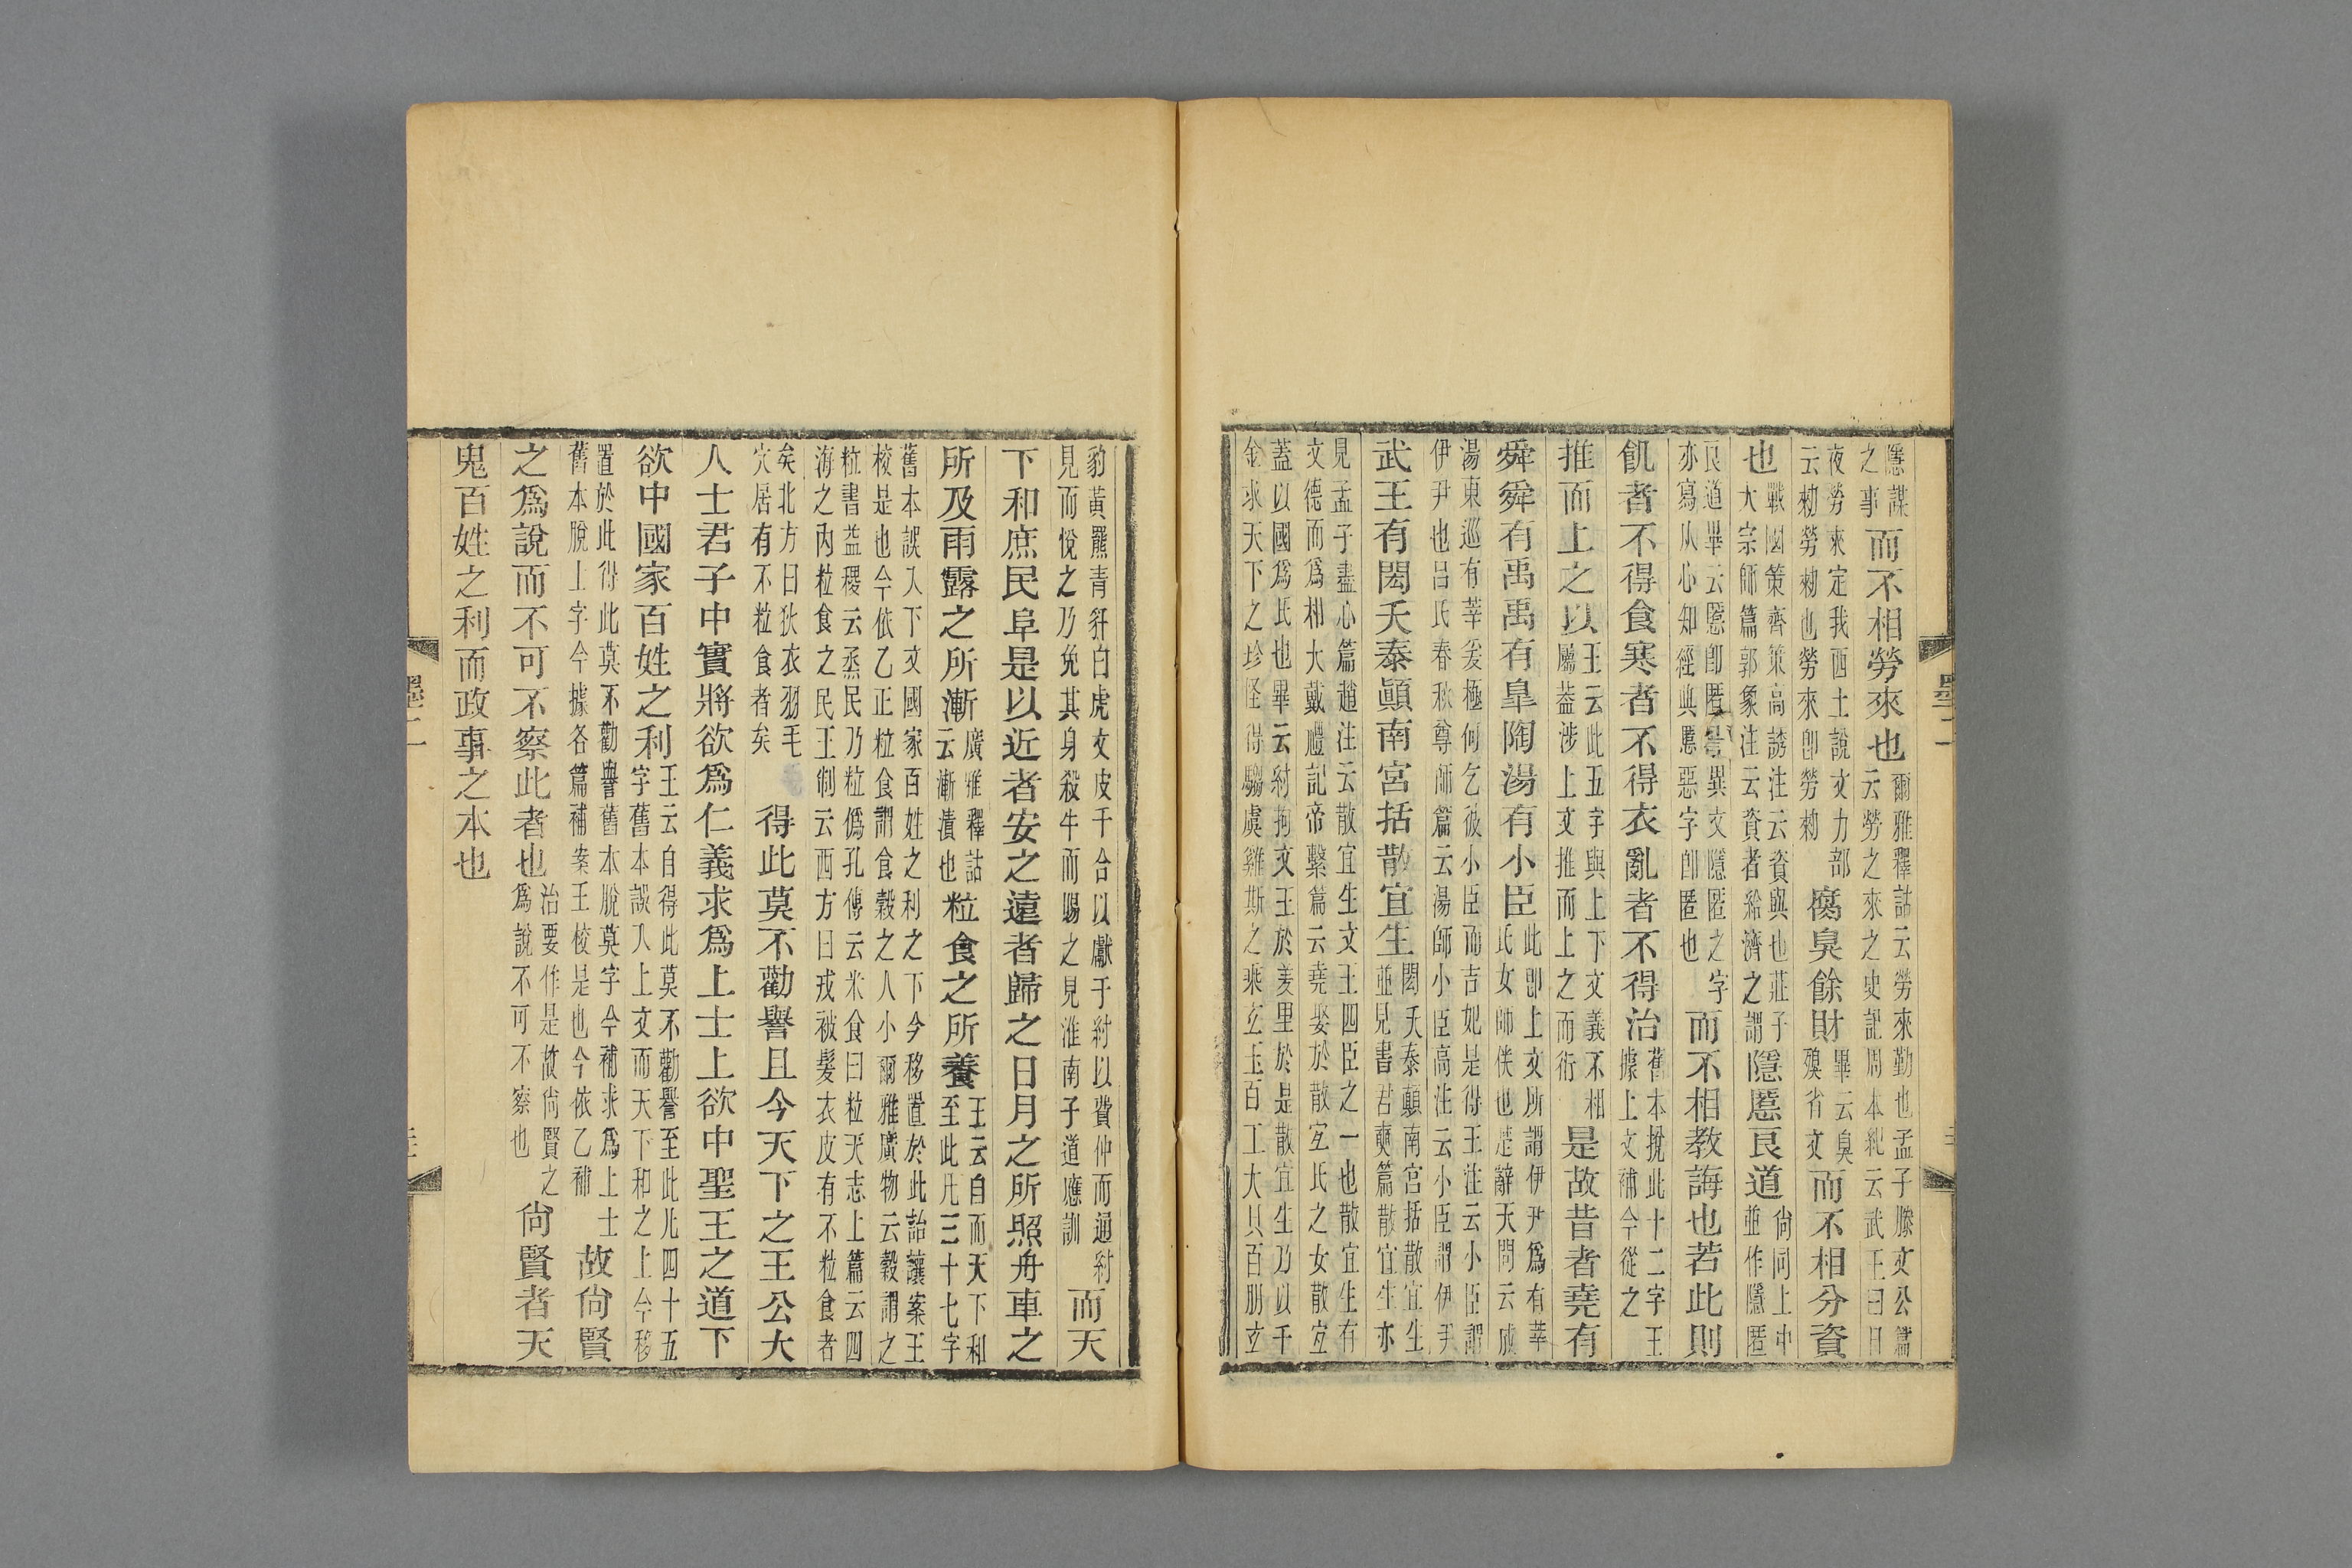 隱謀之事而不相勞來也爾雅釋詁云勞來勤也孟子滕文公篇云勞之來之史記周本紀云武王曰日
夜勞來定我西土說文力部云勑勞勑也勞來卽勞勑腐臭餘財畢云臭殠省文而不相分資
也戰國策齊策高誘注云資與也莊子大宗師篇郭象注云資者給濟之謂隱慝良道尙同上中並作隱匿
良道畢云慝卽匿異文隱匿之字亦寫从心知經典慝惡字卽匿也而不相教誨也若此則
飢者不得食寒者不得衣亂者不得治舊本挩此十二字王據上文補今從之
推而上之以王云此五字與上下文義不相屬葢涉上文推而上之而衍是故昔者堯有
舜舜有禹禹有皐陶湯有小臣此卽上文所謂伊尹爲有莘氏女師僕也楚辭天問云成
湯東巡有莘爰極何乞彼小臣而吉妃是得王注云小臣謂伊尹也呂氏春秋尊師篇云湯師小臣高注云小臣謂伊尹
武王有閎夭泰顚南宮括散宜生閎夭泰顚南宮括散宜生並見書君奭篇散宜生亦
見孟子盡心篇趙注云散宜生文王四臣之一也散宜生有文德而爲相大戴禮記帝繫篇云堯娶於散宜氏之女散宜
蓋以國爲氏也畢云紂拘文王於羑里於是散宜生乃以千金求天下之珍怪得騶虞雞斯之乘玄玉百工大貝百朋玄
豹黃羆青豻白虎文皮千合以獻于紂以費仲而通紂見而悅之乃免其身殺牛而賜之見淮南子道應訓而天
下和庶民阜是以近者安之遠者歸之日月之所照舟車之
所及雨露之所漸廣雅釋詁云漸漬也粒食之所養王云自而天下和至此凡三十七字
舊本誤入下文國家百姓之利之下今移置於此詒讓案王校是也今依乙正粒食謂食穀之人小爾雅廣物云穀謂之
粒書益稷云烝民乃粒僞孔傳云米食曰粒天志上篇云四海之內粒食之民王制云西方曰戎被髮衣皮有不粒食者
矣北方曰狄衣羽毛穴居有不粒食者矣得此莫不勸譽且今天下之王公大
人士君子中實將欲爲仁義求爲上士上欲中聖王之道下
欲中國家百姓之利王云自得此莫不勸譽至此凡四十五字舊本誤入上文而天下和之上今移
置於此得此莫不勸譽舊本脫莫字今補求爲上士舊本脫上字今據各篇補案王校是也今依乙補故尙賢
之爲說而不可不察此者也治要作是故尙賢之爲說不可不察也尙賢者天
鬼百姓之利而政事之本也